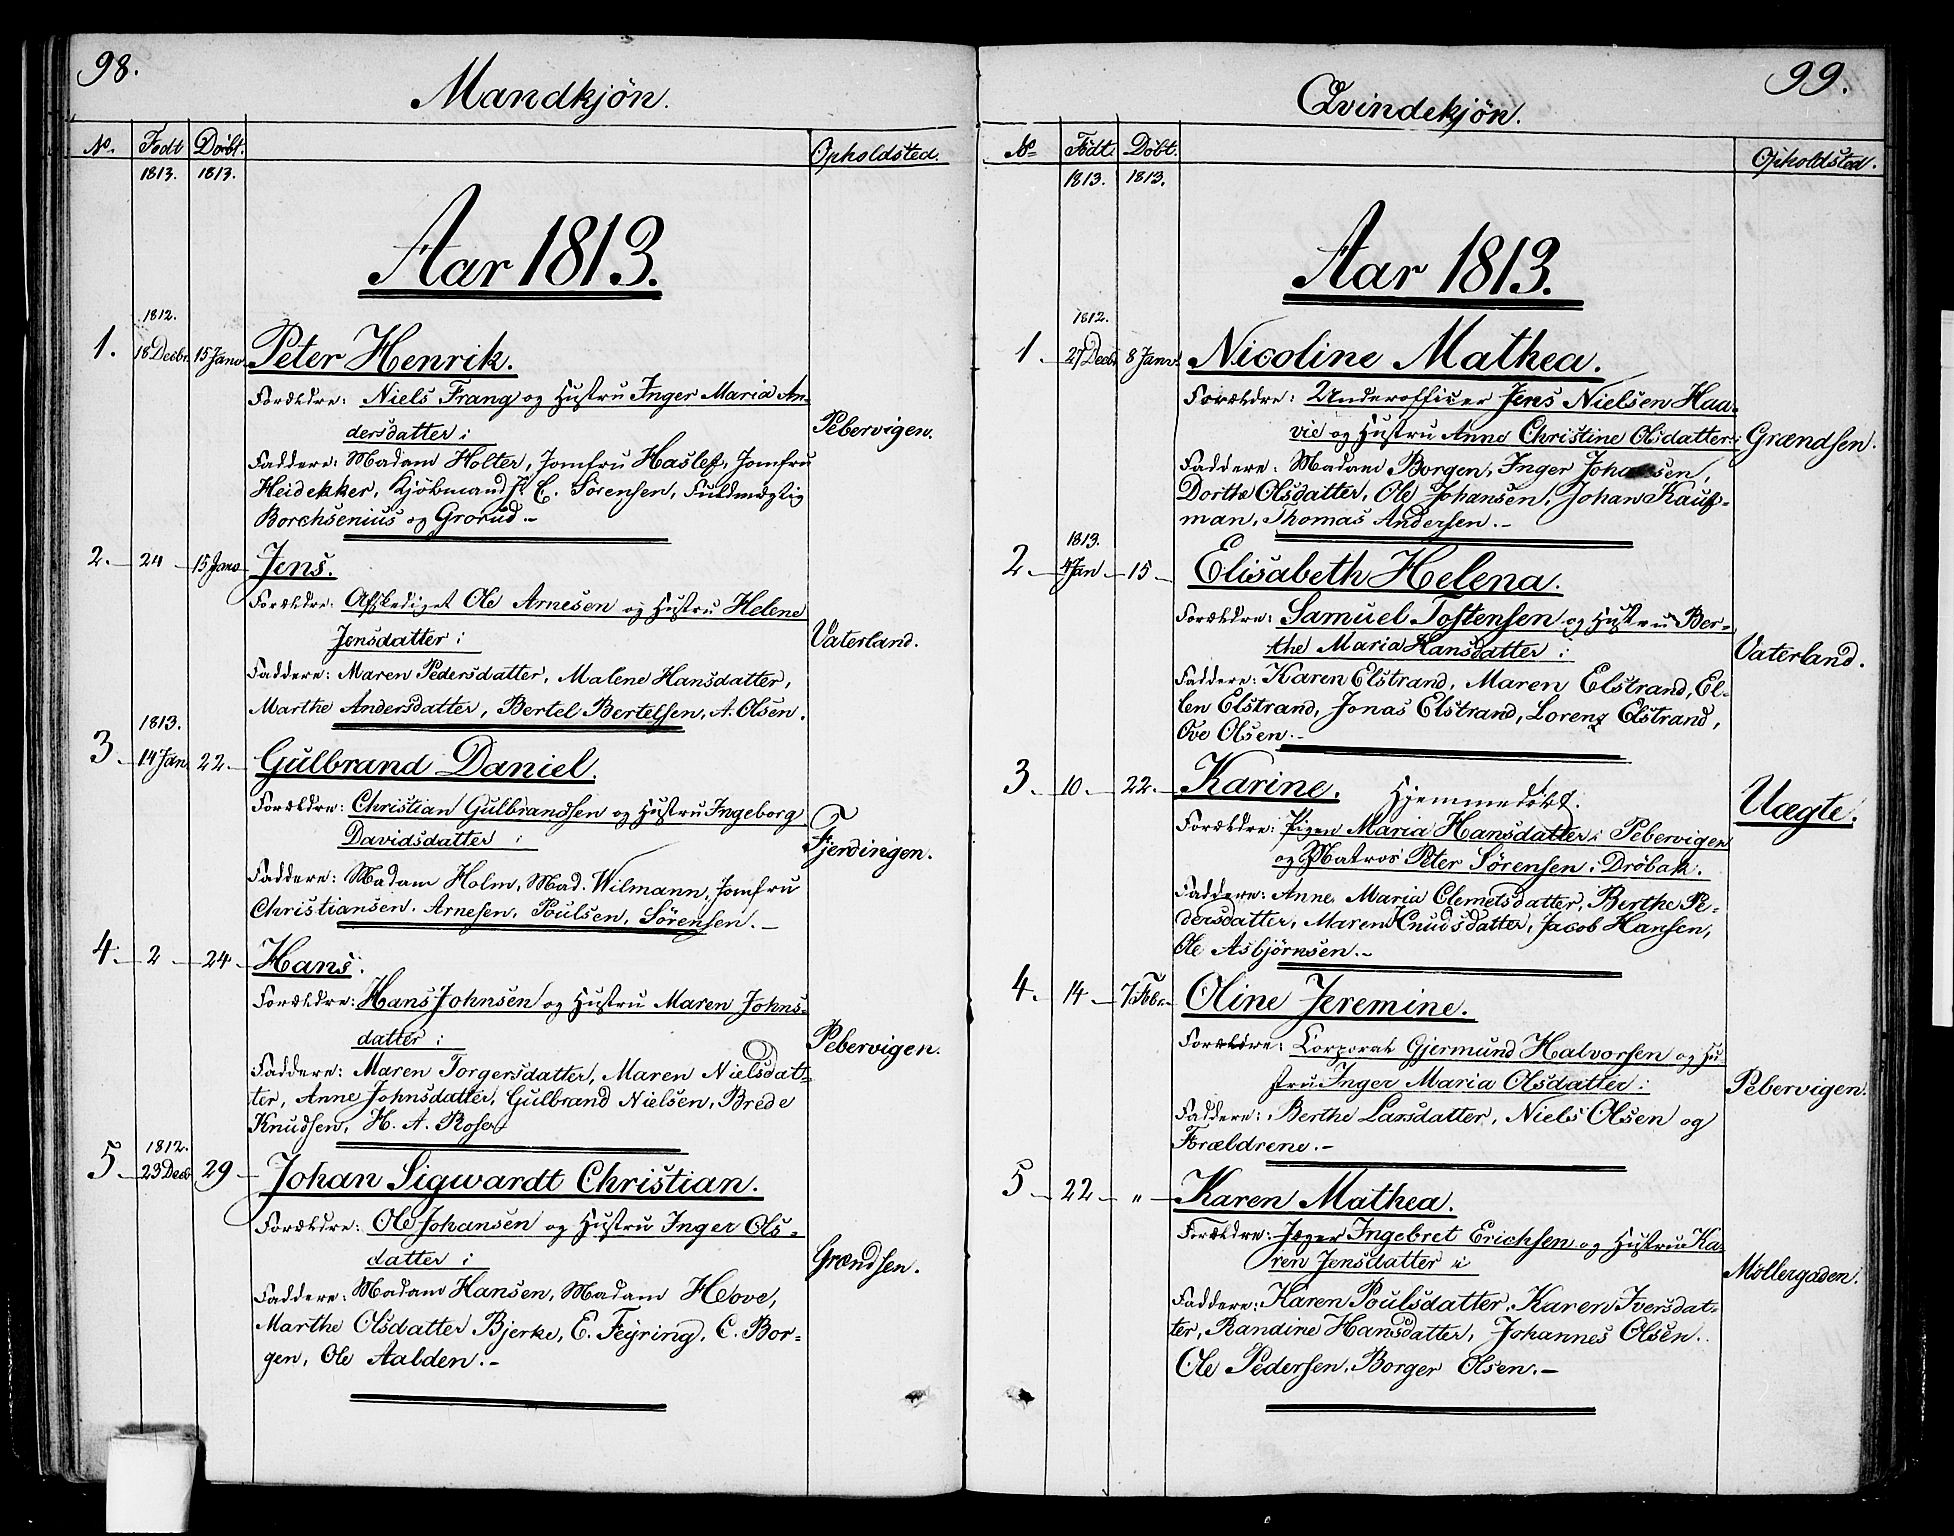 98.
Mandkjön.
No. Födt Döbt. Opholdsted.
1813. 1813.
Aar 1813.
1812.
1. 18 Decbr. 15 Janv. Peter Henrik.
Forældre: Niels Frang og Hustru Inger Maria An-
dersdatter: Pebervigen.
Faddere: Madam Holter, Jomfru Haslef, Jomfru
Heidekker, Kjöbmand C. Sörensen, Fuldmægtig
Borchsenius og Grorud.-
2. 24 15 Janv Jens.
Forældre: Afskediget Ole Arnesen og Hustru Helene
Jensdatter: Vaterland.
Faddere: Maren Pedersdatter, Malene Hansdatter,
Marthe Andersdatter, Bertel Bertelsen, A. Olsen.
1813.
3 14 Jan. 22. Gulbrand Daniel.
Forældre: Christian Gulbrandsen og Hustru Ingeborg
Davidsdatter: Fjerdingen.
Faddere: Madam Holm, Mad. Wilmann, Jomfru
Christiansen. Arnesen, Poulsen, Sörensen.-
4. 2 24 Hans.
Forældre: Hans Johnsen og Hustru Maren Johns-
datter: Pebervigen.
Faddere: Maren Torgersdatter, Maren Nielsdat-
ter, Anne Johnsdatter, Gulbrand Nielsen, Brede
Knudsen, H. A. Rosen
1812.
5 23 Decb 29 Johan Sigwardt Christian.
Forældre: Ole Johansen og Hustru Inger Ols-
datter: Grændsen.
Faddere: Madam Hansen, Madam Hove,
Marthe Olsdatter Bjerke, E. Feyring, C. Bor-
gen, Ole Aalden.-
99.
Qvindekjön.
No Födt. Döbt. Opholdsted.
1813. 1813.
Aar 1813.
1812.
1 27 Decb 8 Janv. Nicoline Mathea.
Forældre: Underofficer Jens Nielsen Haa-
vie og Hustru Anne Christine Olsdatter: Grændsen.
Faddere: Madam Borgen, Inger Johansen,
Dorthe Olsdatter, Ole Johansen, Johan Kauf-
man, Thomas Andersen.-
1813.
2 4 Jan 15 Elisabeth Helena.
Forældre: Samuel Tostensen og Hustru Ber-
the Maria Hansdatter: Vaterland.
Faddere: Karen Elstrand, Maren Elstrand, El-
len Elstrand, Jonas Elstrand, Lorenz Elstrand,
Ove Olsen.-
3 10 22. Karine. Hjemmedöbt.
Forældre: Pigen Maria Hansdatter i Pebervigen Uægte.
og Matros Peter Sörensen i Dröbak.
Faddere: Anne Maria Clemetsdatter, Berthe Pe-
dersdatter, Maren Knudsdatter, Jacob Hansen,
Ole Asbjörnsen.-
4. 14 7 Febr. Oline Jeremine.
Forældre: Corporal Gjermund Halvorsen og Hu-
stru Inger Maria Olsdatter: Pebervigen.
Faddere: Berthe Larsdatter, Niels Olsen og
Forældrene.-
5 22 " Karen Mathea.
Forældre: Jæger Ingebret Erichsen og Hustru Ka-
ren Jensdatter i Möllergaden.
Faddere: Karen Poulsdatter, Karen Iversdat-
ter, Randine Hansdatter, Johannes Olsen.
Ole Pedersen, Borger Olsen.-